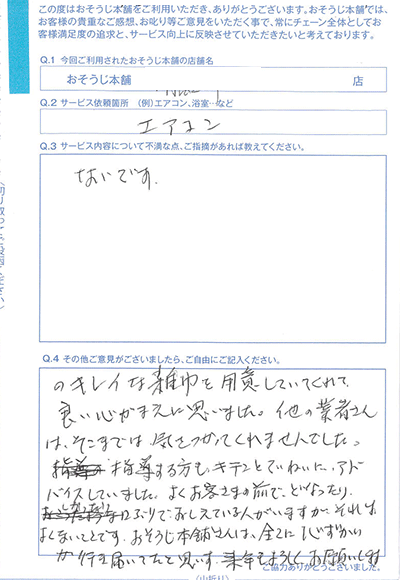 この度はおそうじ本舗をご利用いただき、ありがとうございます。おそうじ本舗では、
お客様の貴重なご感想、お叱り等ご意見をいただく事で、常にチェーン全体としてお
客様満足度の追求と、サービス向上に反映させていただきたいと考えております。
Q.1 今回ご利用されたおそうじ本舗の店舗名
おそうじ本舗 店
Q.2 サービス依頼箇所 (例)エアコン、浴室…など
エアコン
Q.3 サービス内容について不満な点、ご指摘があれば教えてください。
ないです.
Q.4 その他ご意見がございましたら、ご自由にご記入ください。
のキレイな雑巾を用意していてくれて
良い心がまえに思いました。他の業者さん
は、そこまでは気をつかってくれませんでした。
指導する方も、キチンとていねいに、アド
バイスしていました。よくお客さまの前で、どなったり、
口ぶりでおしえている人がいますが、それは
よくないことです。おそうじ本舗さんは、全てに
が行き届いてたと思います。来年もよろしくお願いします
ご協力ありがとうございました。
(山折り)